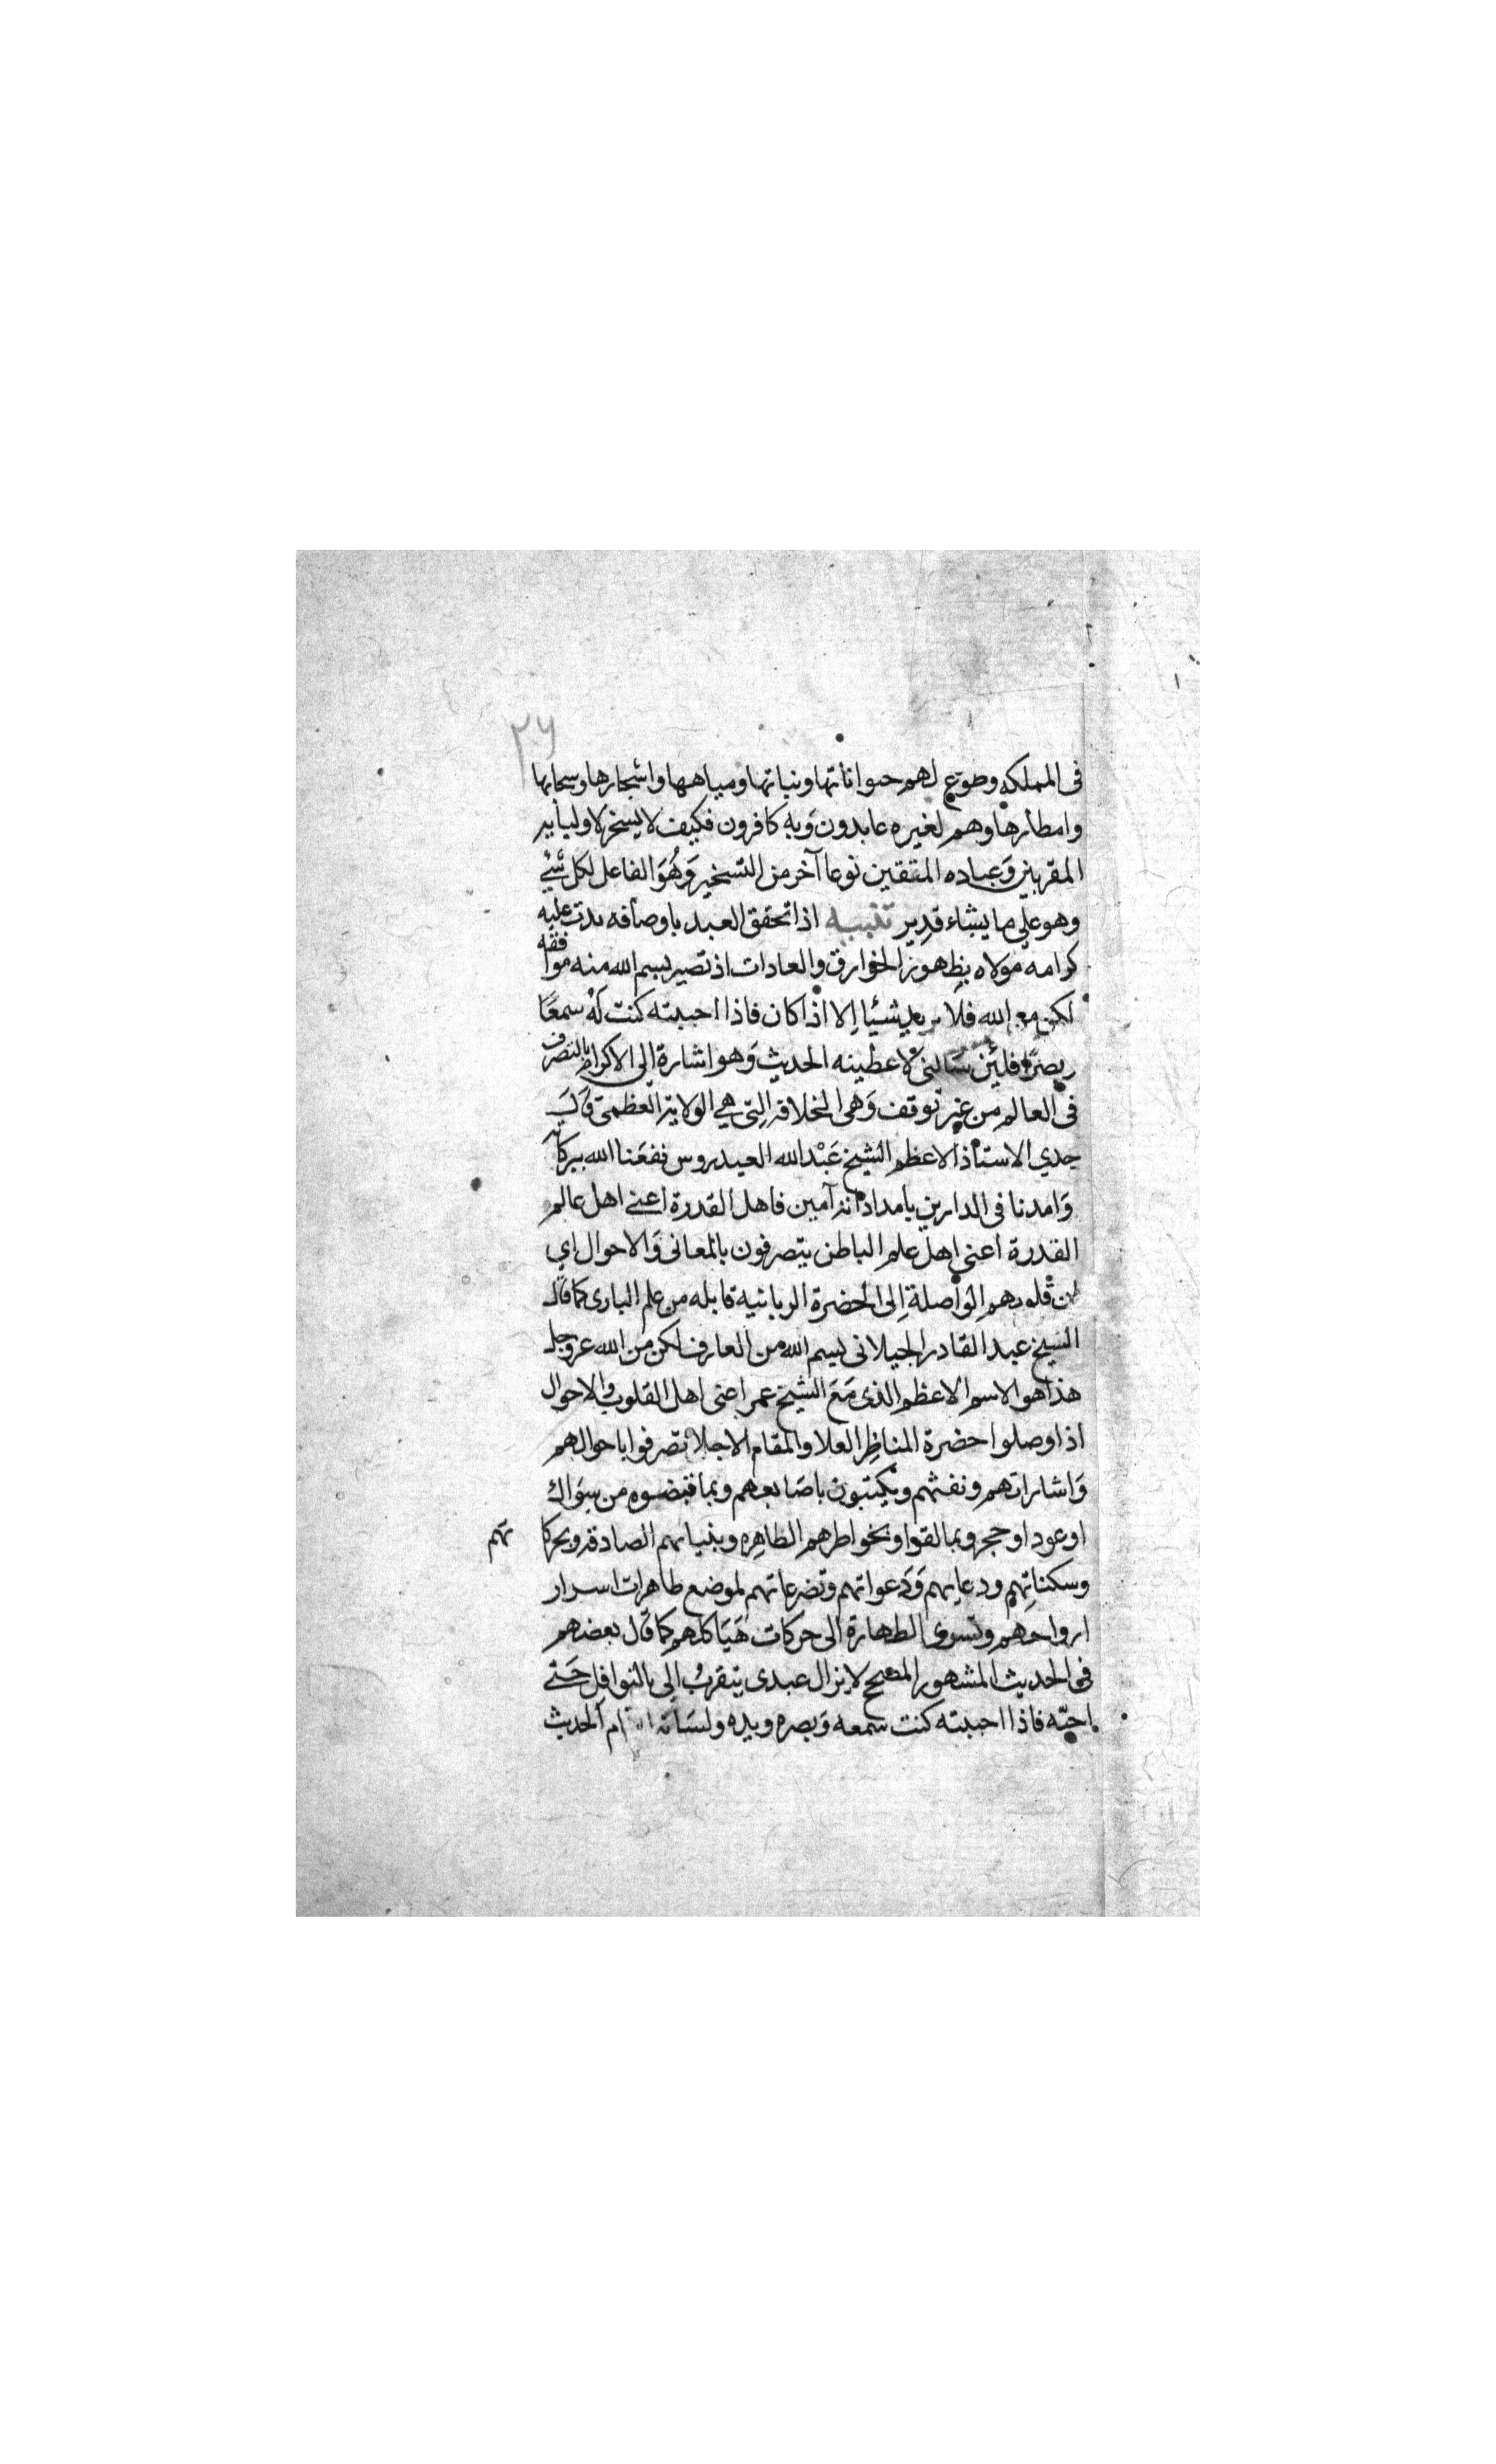 ٢٦
فى المملكه وطوع لهم حيواناتها ونباتها ومياهها واشجارها وسحابها
وامطارها وهم لغيره عابدون وَبه كافرون فكيف لا يسخر لاوليايه
المقربين وَعباده المتقين نوعا آخر من التسخير وَهُوَ الفاعل لكل شئ
وهو على ما يشاء قدير تنبيه اذا تحقق العبد باوصافه بدت عليه
كرامه مولاه بظهور الخوارق والعادات اذ تصير بسم الله منه موافقه
لكن مع الله فلا يريد شيئا إلا اذا كان فاذا احببته كنت لَهُ سمعًا
وبصرًا فلئن سَالنى لاعطينه الحديث وَهو اشارة الى الاكرام بالتصرف
فى العالم من غير توقف وَهى الخلافة التى هي الولاية العظمى قَالَ
جدي الاستاذ الاعظم الشيخ عَبْد الله العيدروس نفعَنا الله ببركاته
وَامدنا فى الدارين بامداداته آمين فاهل القدرة اعنى اهل عالم
القدرة اعنى اهل علم الباطن يتصرفون بالمعانى وَالاحوال اي
لان قلوبهم الواصلة إلى الحضرة الربانيه قابله من علم البارى كما قال
الشيخ عبد القادر الجيلانى بسم الله من العارف لكن من الله عز وجل
هذا هو الاسم الاعظم الذى مَعَ الشيخ عمر اعنى اهل القلوب والاحوال
اذا وصلوا حضرة المناظر العلا والمقام الاجلا تصرفوا باحوالهم
وَاشاراتهم ونفثهم ويكتبون باصَابعهم وبما قبضوه من سِوَاك
او عود او حجر وبما لقوا وبخواطرهم الطاهره وبنياتهم الصادقه وبحركاتهم
وسكناتِهم ودعايهم وَدَعواتهم وتضرعاتهم لموضع طاهرات اسرار
ارواحهم وتسرى الطهارة الى حركات هَيَاكلهم كما قال بعضهم
فى الحديث المشهور الصحيح لا يزال عبدى يتقربُ إلى بالنوافل حَتى
احبّه فاذا احببته كنت سمعه وَبصره ويده ولسَانه الحديث